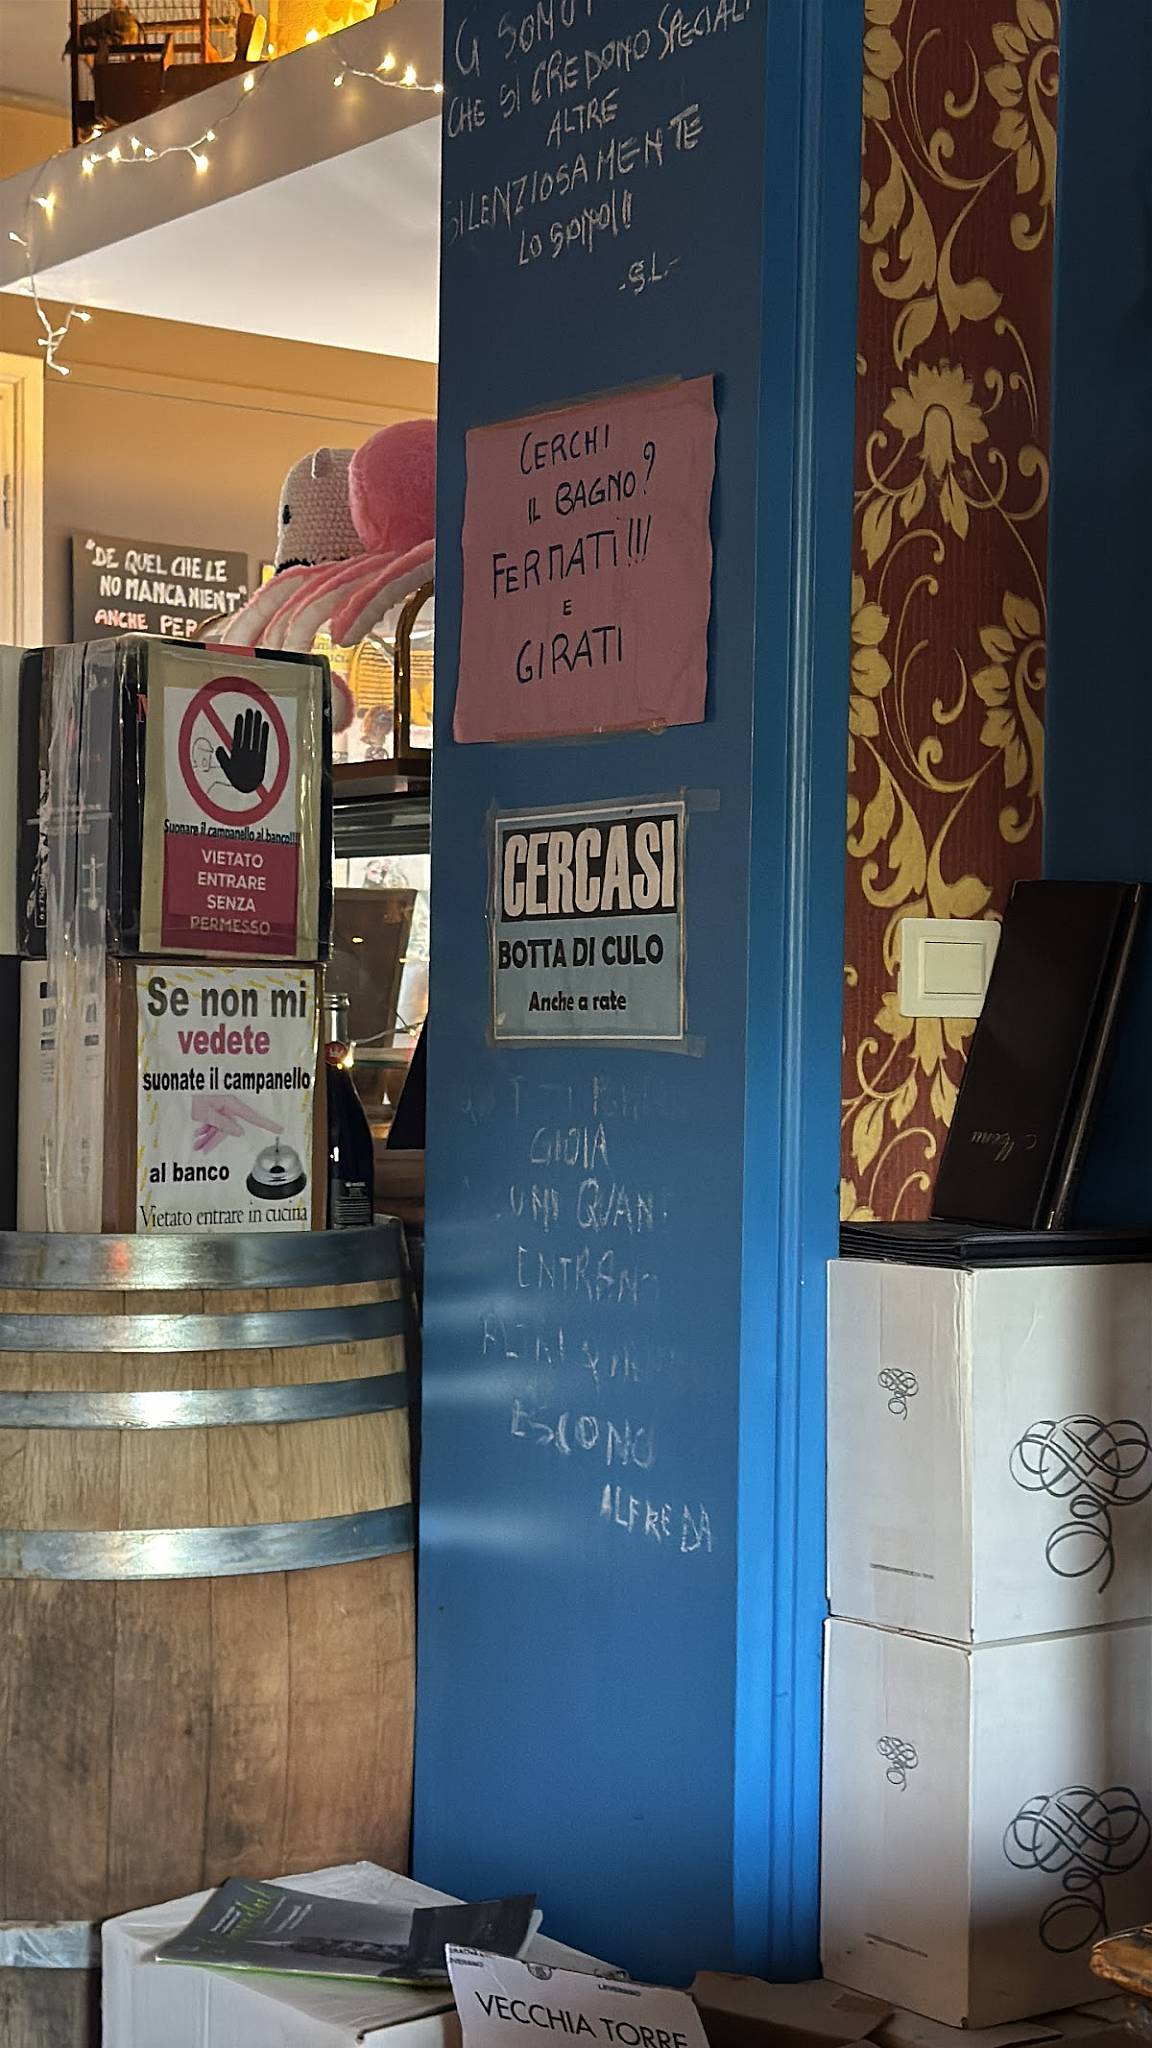 CI SONO
CHE SI CREDONO SPECIALI
ALTRE
SILENZIOSAMENTE
LO SONO!!
-S.L.-
CERCHI
IL BAGNO?
FERMATI!!!
E
GIRATI
CERCASI
BOTTA DI CULO
Anche a rate
GIOIA
ENTRANO
ESCONO
ALFREDA
"DE QUEL CHE LE
NO MANCA NIENT"
ANCHE PER
Suonare il campanello al banco!!!!
VIETATO
ENTRARE
SENZA
PERMESSO
Se non mi
vedete
suonate il campanello
al banco
Vietato entrare in cucina
Menu
VECCHIA TORRE
LEVERANO